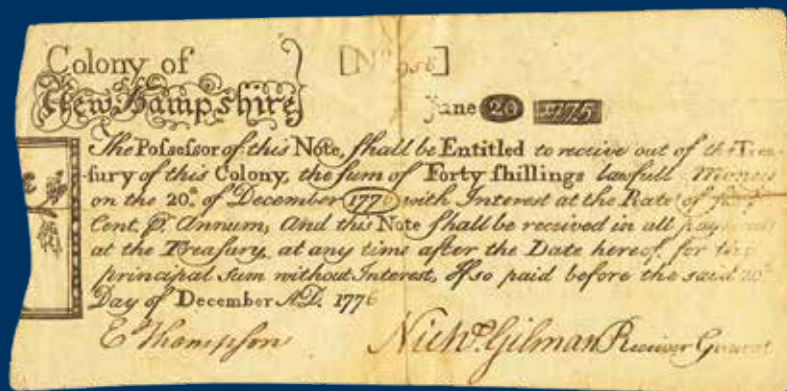 Colony of [No 956]
New Hampshire
June 20 1775
The Poſseſsor of this Note, ſhall be Entitled to receive out of the Trea-
ſury of this Colony, the ſum of Forty ſhillings lawfull Money
on the 20th of December 1776 with Interest at the Rate of
Cent. P. Annum, And this Note ſhall be received in all payments
at the Treaſury, at any time after the Date hereof, for the
principal Sum without Interest, If so paid before the said 20th
Day of December A.D. 1776
E Thompson Nichs. Gilman Receiver General